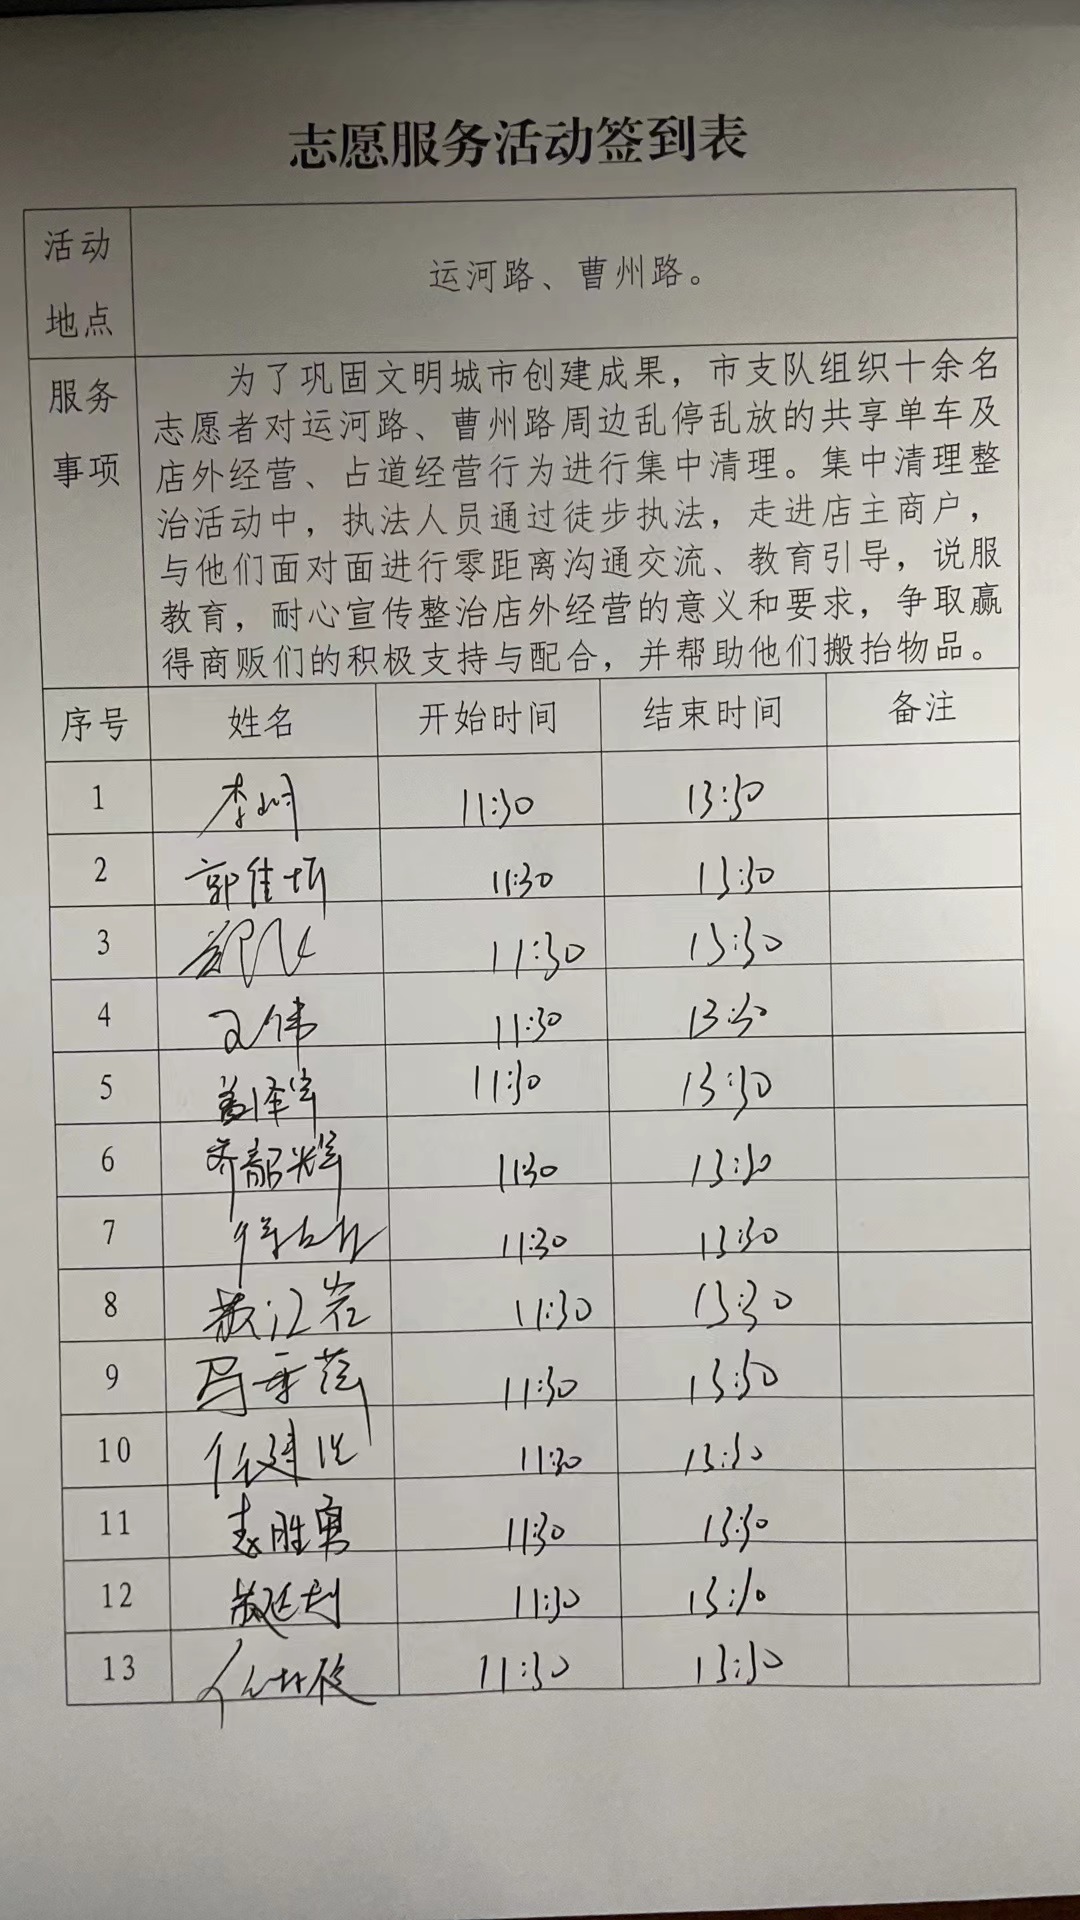 志愿服务活动签到表
活动地点 运河路、曹州路。
服务事项
为了巩固文明城市创建成果，市支队组织十余名
志愿者对运河路、曹州路周边乱停乱放的共享单车及
店外经营、占道经营行为进行集中清理。集中清理整
治活动中，执法人员通过徒步执法，走进店主商户，
与他们面对面进行零距离沟通交流、教育引导，说服
教育，耐心宣传整治店外经营的意义和要求，争取赢
得商贩们的积极支持与配合，并帮助他们搬抬物品。
序号 姓名 开始时间 结束时间 备注
1 11:30 13:30
2 郭佳 11:30 13:30
3 11:30 13:30
4 11:30 13:30
5 11:30 13:30
6 齐韶辉 11:30 13:30
7 11:30 13:30
8 11:30 13:30
9 11:30 13:30
10 任建 11:30 13:30
11 赵胜勇 11:30 13:30
12 11:30
13 11:30 13:30